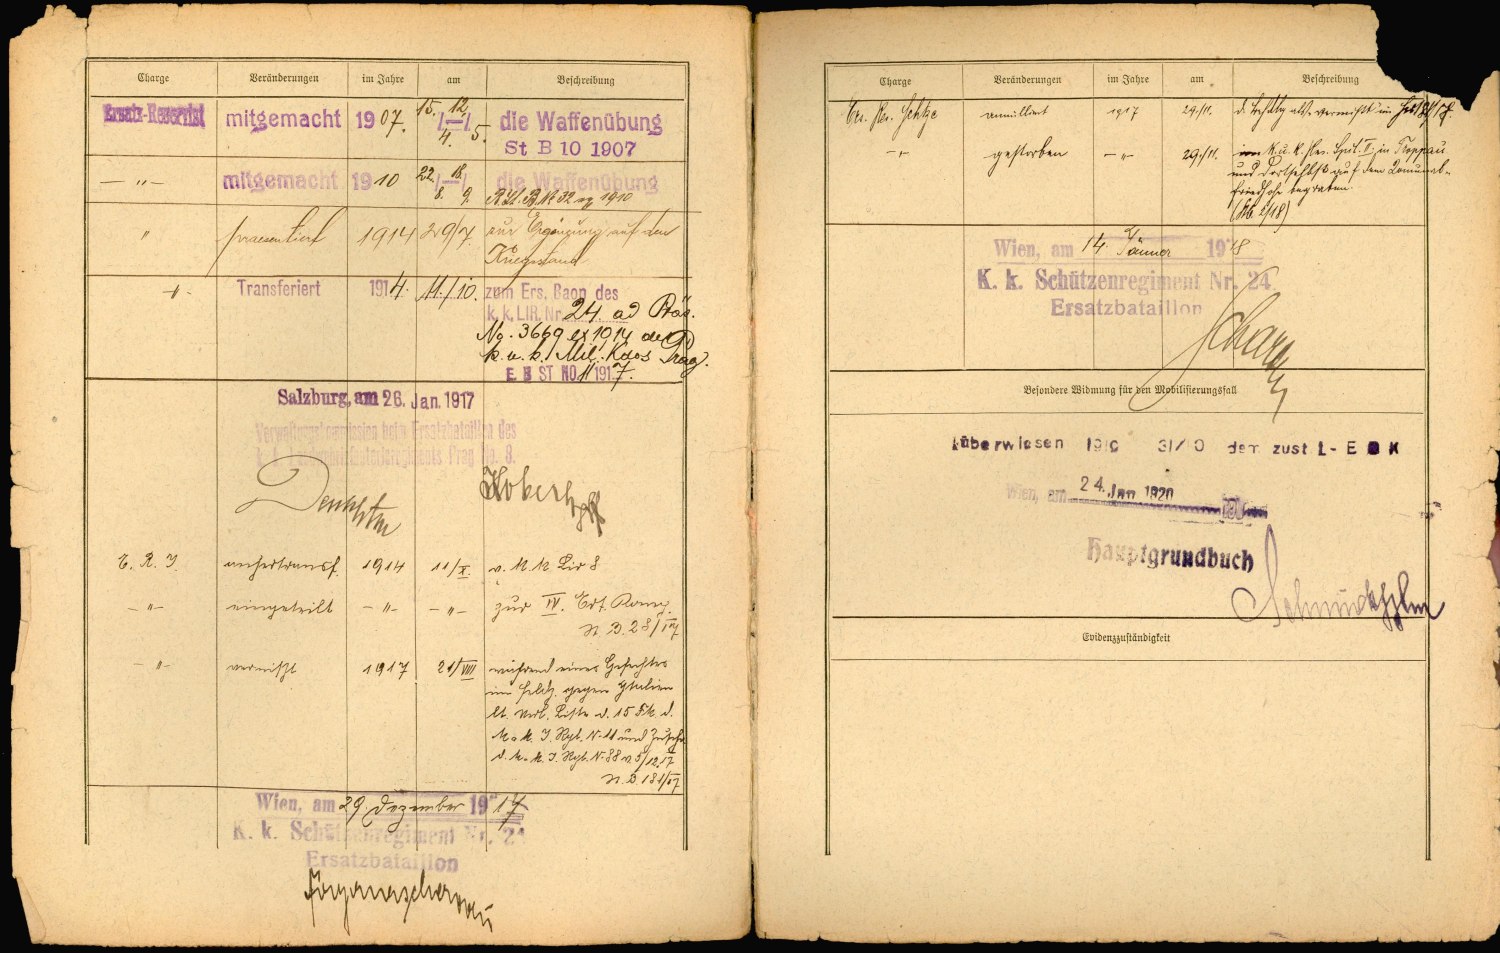 Charge Veränderungen im Jahre am Beschreibung
Ersatz-Reservist mitgemacht 1907. 15./4. — 12./5. die Waffenübung
St B 10 1907
— " — mitgemacht 1910 22./8. — 18./9. die Waffenübung
1910
" praesentiert 1914 29/7. zur Ergänzung auf den
Kriegsstand
" Transferiert 1914. 11./10. zum Ers. Baon des
k. k. LIR. Nr. 24. ad Präs.
No. 3669 ex 1914 des
k. u. k. Mil. Kdos Prag.
E B ST NO 11 1917.
Salzburg, am 26. Jan. 1917
Verwaltungskommission beim Ersatzbataillon des
Prag No. 8.
E. R. J. anhertransf. 1914 11/X v. k. k. Lir 8
— " — eingeteilt — " — — " — zur IV. Ers. Komp.
N. B. 28/IV 17
— " — vermißt 1917 21/VIII während eines Gefechtes
im Feldz. gegen Italien
lt. Verl. Liste d. 15 FK d.
k. k. J. Rgt. N. 11 und Zuschr.
d. k. k. J. Rgt. N. 88 v. 5/12.17
N. B 181/17
Wien, am 29. Dezember 1917
K. k. Schützenregiment Nr. 24
Ersatzbataillon
Charge Veränderungen im Jahre am Beschreibung
Ers. Res. Schtze annulliert 1917 29./11. d. als vermißt im
— " — gestorben — " — 29./11. im k. u. k. Res. Spit. II. in Troppau
und dortselbst auf dem Komunal-
friedhofe begraben.
Wien, am 14. Jänner 1918
K. k. Schützenregiment Nr. 24
Ersatzbataillon
Besondere Widmung für den Mobilisierungsfall
überwiesen 1919 31/10 dem zust L-E B K
Wien, am 24. Jan. 1920
Hauptgrundbuch
Evidenzzuständigkeit